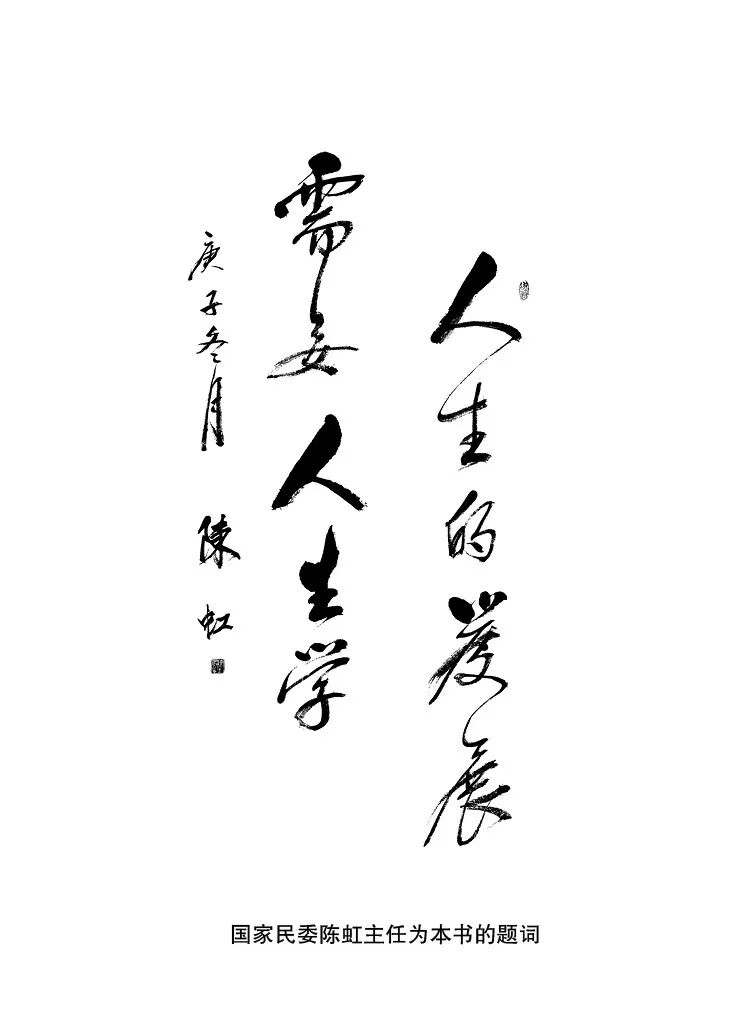 人生的发展
需要人生学
庚子冬月 陈虹
国家民委陈虹主任为本书的题词